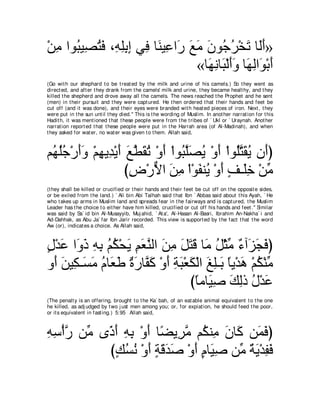 «أَلَا تَخْرُجُونَ مَعَ رَاعِينَا فِي إِبِلِهِ، فَتُصِيبُوا مِنْ
أَبْوَالِهَا وَأَلْبَانِهَا»
(Go with our shephard to be treated by the milk and urine of his camels.) So they went as
directed, and after they drank from the camels' milk and urine, they became healthy, and they
killed the shepherd and drove away all the camels. The news reached the Prophet and he sent
(men) in their pursuit and they were captured. He then ordered that their hands and feet be
cut off (and it was done), and their eyes were branded with heated pieces of iron. Next, they
were put in the sun until they died." This is the wording of Muslim. In another narration for this
Hadith, it was mentioned that these people were from the tribes of `Ukl or `Uraynah. Another
narration reported that these people were put in the Harrah area (of Al-Madinah), and when
they asked for water, no water was given to them. Allah said,
(أَن يُقَتَّلُواْ أَوْ يُصَلَّبُواْ أَوْ تُقَطَّعَ أَيْدِيهِمْ وَأَرْجُلُهُم
مِّنْ خِلَـفٍ أَوْ يُنفَوْاْ مِنَ الاٌّرْضِ)
(they shall be killed or crucified or their hands and their feet be cut off on the opposite sides,
or be exiled from the land.) `Ali bin Abi Talhah said that Ibn `Abbas said about this Ayah, `He
who takes up arms in Muslim land and spreads fear in the fairways and is captured, the Muslim
Leader has the choice to either have him killed, crucified or cut off his hands and feet.'' Similar
was said by Sa`id bin Al-Musayyib, Mujahid, `Ata', Al-Hasan Al-Basri, Ibrahim An-Nakha`i and
Ad-Dahhak, as Abu Ja`far Ibn Jarir recorded. This view is supported by the fact that the word
Aw (or), indicates a choice. As Allah said,
(فَجَزَآءٌ مِّثْلُ مَا قَتَلَ مِنَ النَّعَمِ يَحْكُمُ بِهِ ذَوَا عَدْلٍ
مِّنْكُمْ هَدْياً بَـلِغَ الْكَعْبَةِ أَوْ كَفَّارَةٌ طَعَامُ مَسَـكِينَ أَو
عَدْلُ ذلِكَ صِيَاماً)
(The penalty is an offering, brought to the Ka`bah, of an eatable animal equivalent to the one
he killed, as adjudged by two just men among you; or, for expiation, he should feed the poor,
or its equivalent in fasting.) 5:95 Allah said,
(فَمَن كَانَ مِنكُم مَّرِيضًا أَوْ بِهِ أَذًى مِّن رَّأْسِهِ
فَفِدْيَةٌ مِّن صِيَامٍ أَوْ صَدَقَةٍ أَوْ نُسُكٍ)